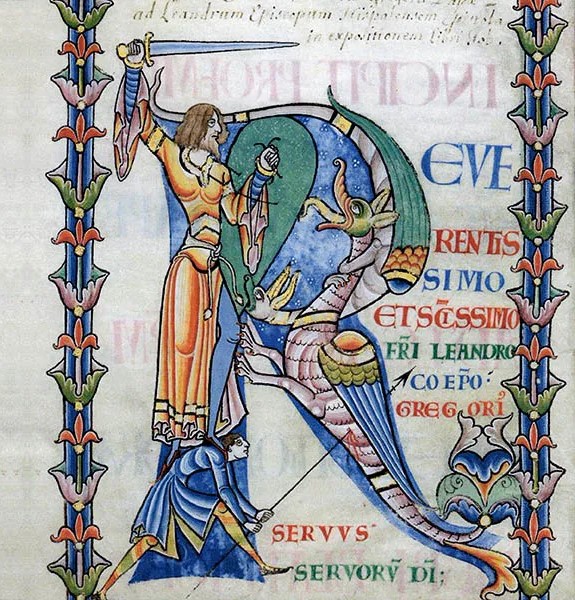 ad Leandrum Episcopum Hispalensem Epistola
in expositionem Libri Job.
R EVE
RENTIS
SIMO
ET SC̄ISSIMO
FR̄I LEANDRO
COEPŌ:
GREGORI'
SERVVS
SERVORV̄ DĪ;